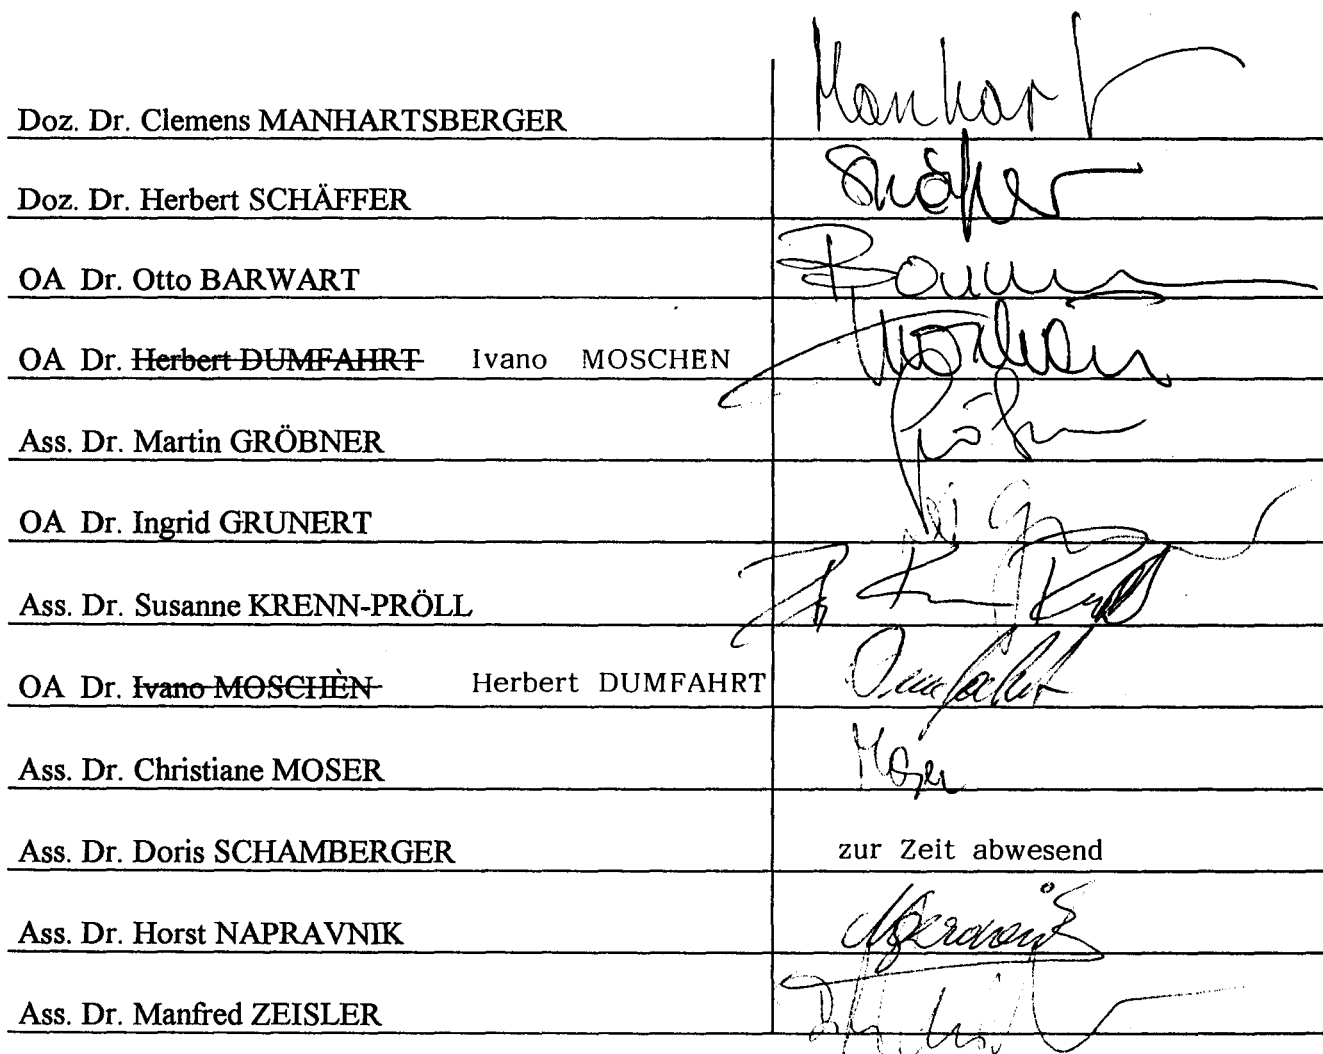 Doz. Dr. Clemens MANHARTSBERGER Manhart
Doz. Dr. Herbert SCHÄFFER Schäffer
OA Dr. Otto BARWART
OA Dr. Herbert DUMFAHRT Ivano MOSCHEN Moschèn
Ass. Dr. Martin GRÖBNER
OA Dr. Ingrid GRUNERT
Ass. Dr. Susanne KRENN-PRÖLL
OA Dr. Ivano MOSCHÈN Herbert DUMFAHRT Dumfahrt
Ass. Dr. Christiane MOSER Moser
Ass. Dr. Doris SCHAMBERGER zur Zeit abwesend
Ass. Dr. Horst NAPRAVNIK Napravnik
Ass. Dr. Manfred ZEISLER